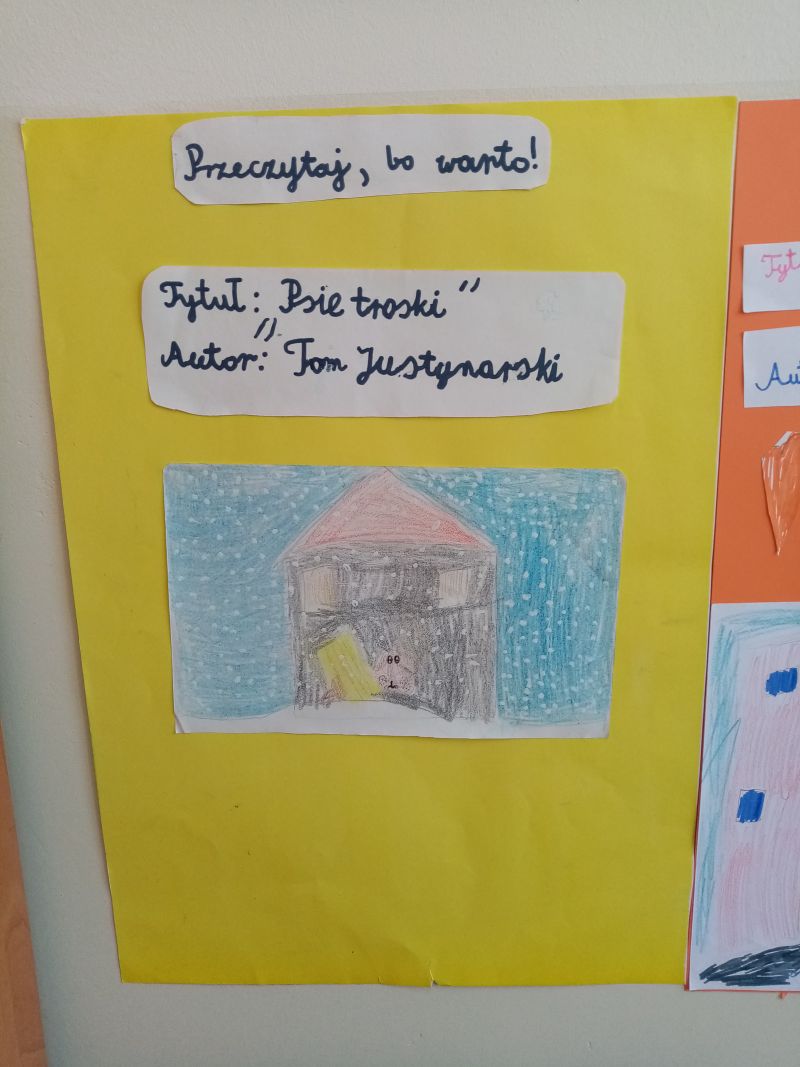 Przeczytaj, bo warto!
Tytuł: „Psie troski”
Autor: Tom Justynarski
Tyt
Au